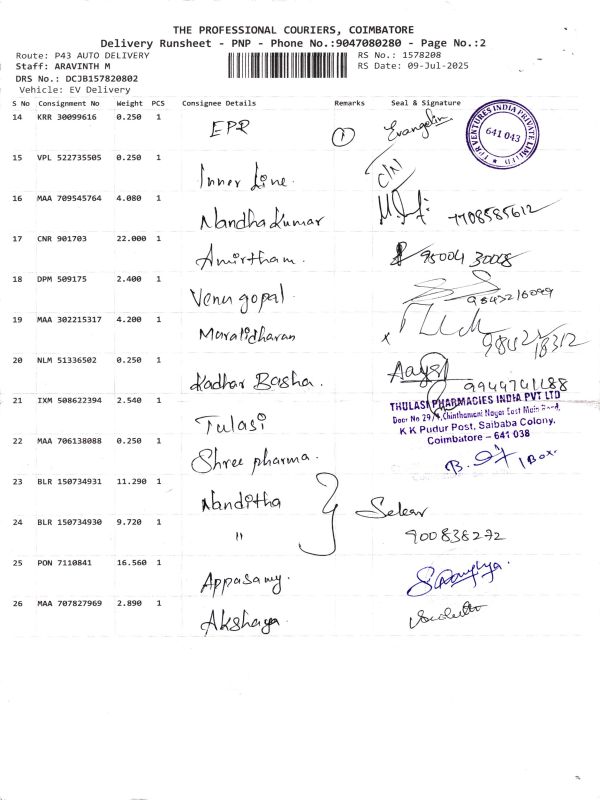 THE PROFESSIONAL COURIERS, COIMBATORE
Delivery Runsheet - PNP - Phone No.:9047080280 - Page No.:2
Route: P43 AUTO DELIVERY RS No.: 1578208
Staff: ARAVINTH M RS Date: 09-Jul-2025
DRS No.: DCJB157820802
Vehicle: EV Delivery
S No Consignment No Weight PCS Consignee Details Remarks Seal & Signature
14 KRR 30099616 0.250 1 EPR 1 Evangelin
VENTURES INDIA PRIVATE LIMITED 641 043
15 VPL 522735505 0.250 1 Inner Line.
16 MAA 709545764 4.080 1 Nandhakumar 7708585612
17 CNR 901703 22.000 1 Amirtham. 95004 30008
18 DPM 509175 2.400 1 Venu gopal.
19 MAA 302215317 4.200 1 Muralidharan
20 NLM 51336502 0.250 1 Kadhar Basha. 9944741188
21 IXM 508622394 2.540 1 Tulasi
THULASI PHARMACIES INDIA PVT LTD
Door No 29/4, Chinthamani Nagar East Main Road,
K K Pudur Post, Saibaba Colony,
Coimbatore – 641 038
22 MAA 706138088 0.250 1 Shree pharma. 1 Box.
23 BLR 150734931 11.290 1 Nanditha
24 BLR 150734930 9.720 1 " 900838272
25 PON 7110841 16.560 1 Appasamy.
26 MAA 707827969 2.890 1 Akshaya